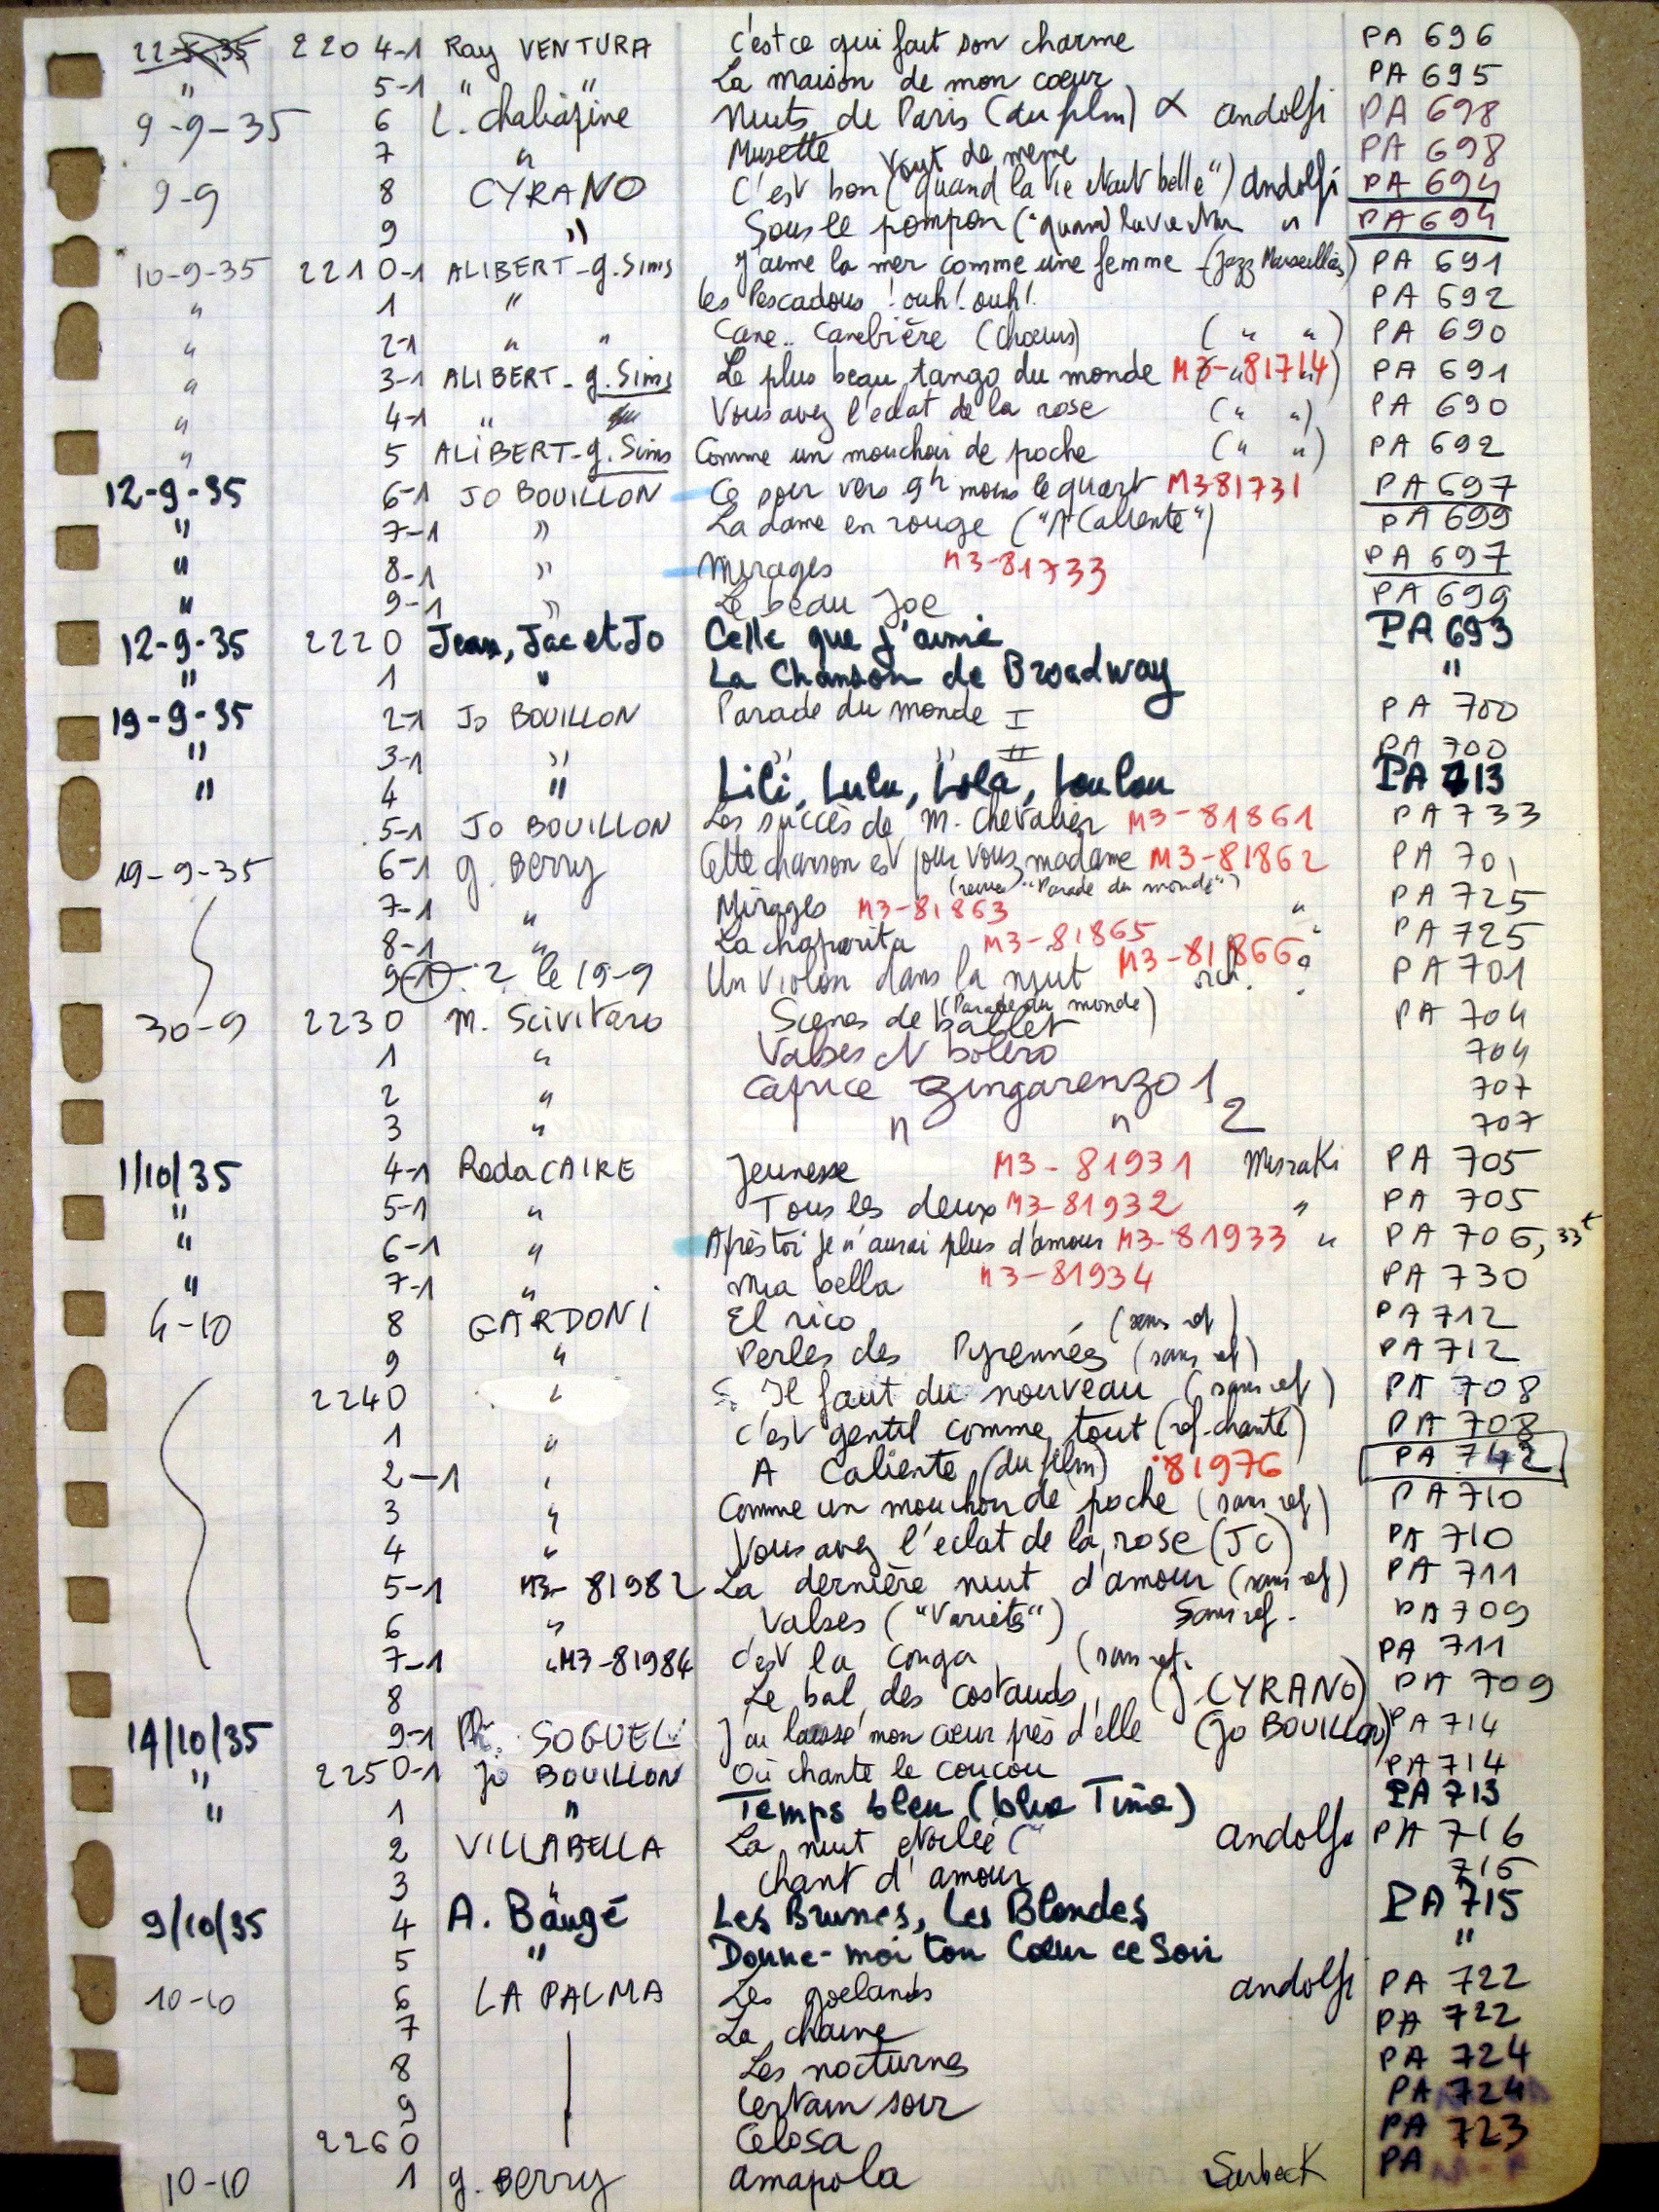 22-5-35 2204-1 Ray VENTURA C'est ce qui fait son charme PA 696
" 5-1 " " La maison de mon coeur PA 695
9-9-35 6 L. Chaliapine Nuits de Paris (du film) andolfi PA 698
7 " Musette PA 698
tout de meme
9-9 8 CYRANO C'est bon ("quand la vie était belle") andolfi PA 694
9 " Sous le pompon ("quand la vie " PA 694
10-9-35 2210-1 ALIBERT-g.Sims J'aime la mer comme une femme -(Jazz Marseillais) PA 691
" 1 " les Pescadous ! ouh! ouh! PA 692
" 2-1 " " Cane.. Canebière (choeurs) ( " " ) PA 690
" 3-1 ALIBERT-g.Sims Le plus beau tango du monde M3-81714 PA 691
" 4-1 " Vous avez l'éclat de la rose ( " " ) PA 690
" 5 ALIBERT-g.Sims Comme un mouchoir de poche ( " " ) PA 692
12-9-35 6-1 JO BOUILLON Ce soir vers 9h moins le quart M381731 PA 697
" 7-1 " La dame en rouge ("A Caliente") PA 699
" 8-1 " Mirages M3-81733 PA 697
" 9-1 " Le beau Joe PA 699
12-9-35 2220 Jean, Jac et Jo Celle que j'aime PA 693
" 1 " La Chanson de Broadway "
19-9-35 2-1 Jo BOUILLON Parade du monde I PA 700
" 3-1 " " " II PA 700
" 4 " Lili, Lulu, Lola, Loulou PA 713
5-1 JO BOUILLON Les succès de M. Chevalier M3-81861 PA 733
19-9-35 6-1 g. Berry Cette chanson est pour vous, madame M3-81862 PA 701
(revue "Parade du monde")
7-1 " Mirages M3-81863 " PA 725
8-1 " La chaparita M3-81865 " PA 725
9-1 : 2 le 19-9 Un Violon dans la nuit M3-81866 orch. PA 701
(Parade du monde)
30-9 2230 M. Scivitaro Scenes de ballet PA 704
1 " Valses et boléro 704
2 " Caprice Zingarenzo 1 707
3 " " " 2 707
1/10/35 4-1 Reda CAIRE Jeunesse M3-81931 Misraki PA 705
" 5-1 " Tous les deux M3-81932 " PA 705
" 6-1 " Après toi je n'aurai plus d'amour M3-81933 " PA 706, 33t
" 7-1 " Mia bella M3-81934 PA 730
4-10 8 GARDONI El rico (sans ref) PA 712
9 " Perles des Pyrennées (sans ref) PA 712
2240 " Il faut du nouveau (sans ref) PA 708
1 " C'est gentil comme tout (ref. chanté) PA 708
2-1 " A Caliente (du film) 81976 PA 742
3 " Comme un mouchoir de poche (sans ref) PA 710
4 " Vous avez l'éclat de la rose (JC) PA 710
5-1 M3-81982 La dernière nuit d'amour (sans ref) PA 711
6 " Valses ("Variétés") Sans ref. PA 709
7-1 " M3-81984 C'est la conga (sans ref. PA 711
8 Le bal des costauds (J. CYRANO) PA 709
14/10/35 9-1 Ph. SOGUEL J'ai laissé mon coeur près d'elle (Jo BOUILLON) PA 714
" 2250-1 Jo BOUILLON Où chante le coucou PA 714
" 1 " Temps bleu (blue Time) PA 713
2 VILLABELLA La nuit étoilée (" andolfi PA 716
3 " Chant d'amour 716
9/10/35 4 A. Baugé Les Brunes, Les Blondes PA 715
5 " Donne-moi ton Coeur ce Soir "
10-10 6 LA PALMA Les goelands andolfi PA 722
7 La chaine PA 722
8 Les nocturnes PA 724
9 Certain soir PA 724
2260 Celosa PA 723
10-10 1 g. Berry amapola Sarbeck PA